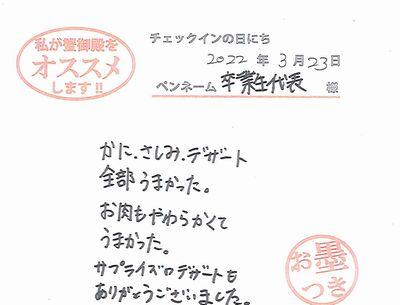 私が蟹御殿を
オススメ
します!!
チェックインの日にち
2022年3月23日
ペンネーム 卒業生代表 様
かに、さしみ、デザート
全部うまかった。
お肉もやわらかくて
うまかった。
サプライズのデザートも
ありがとうございました。
お墨
つき